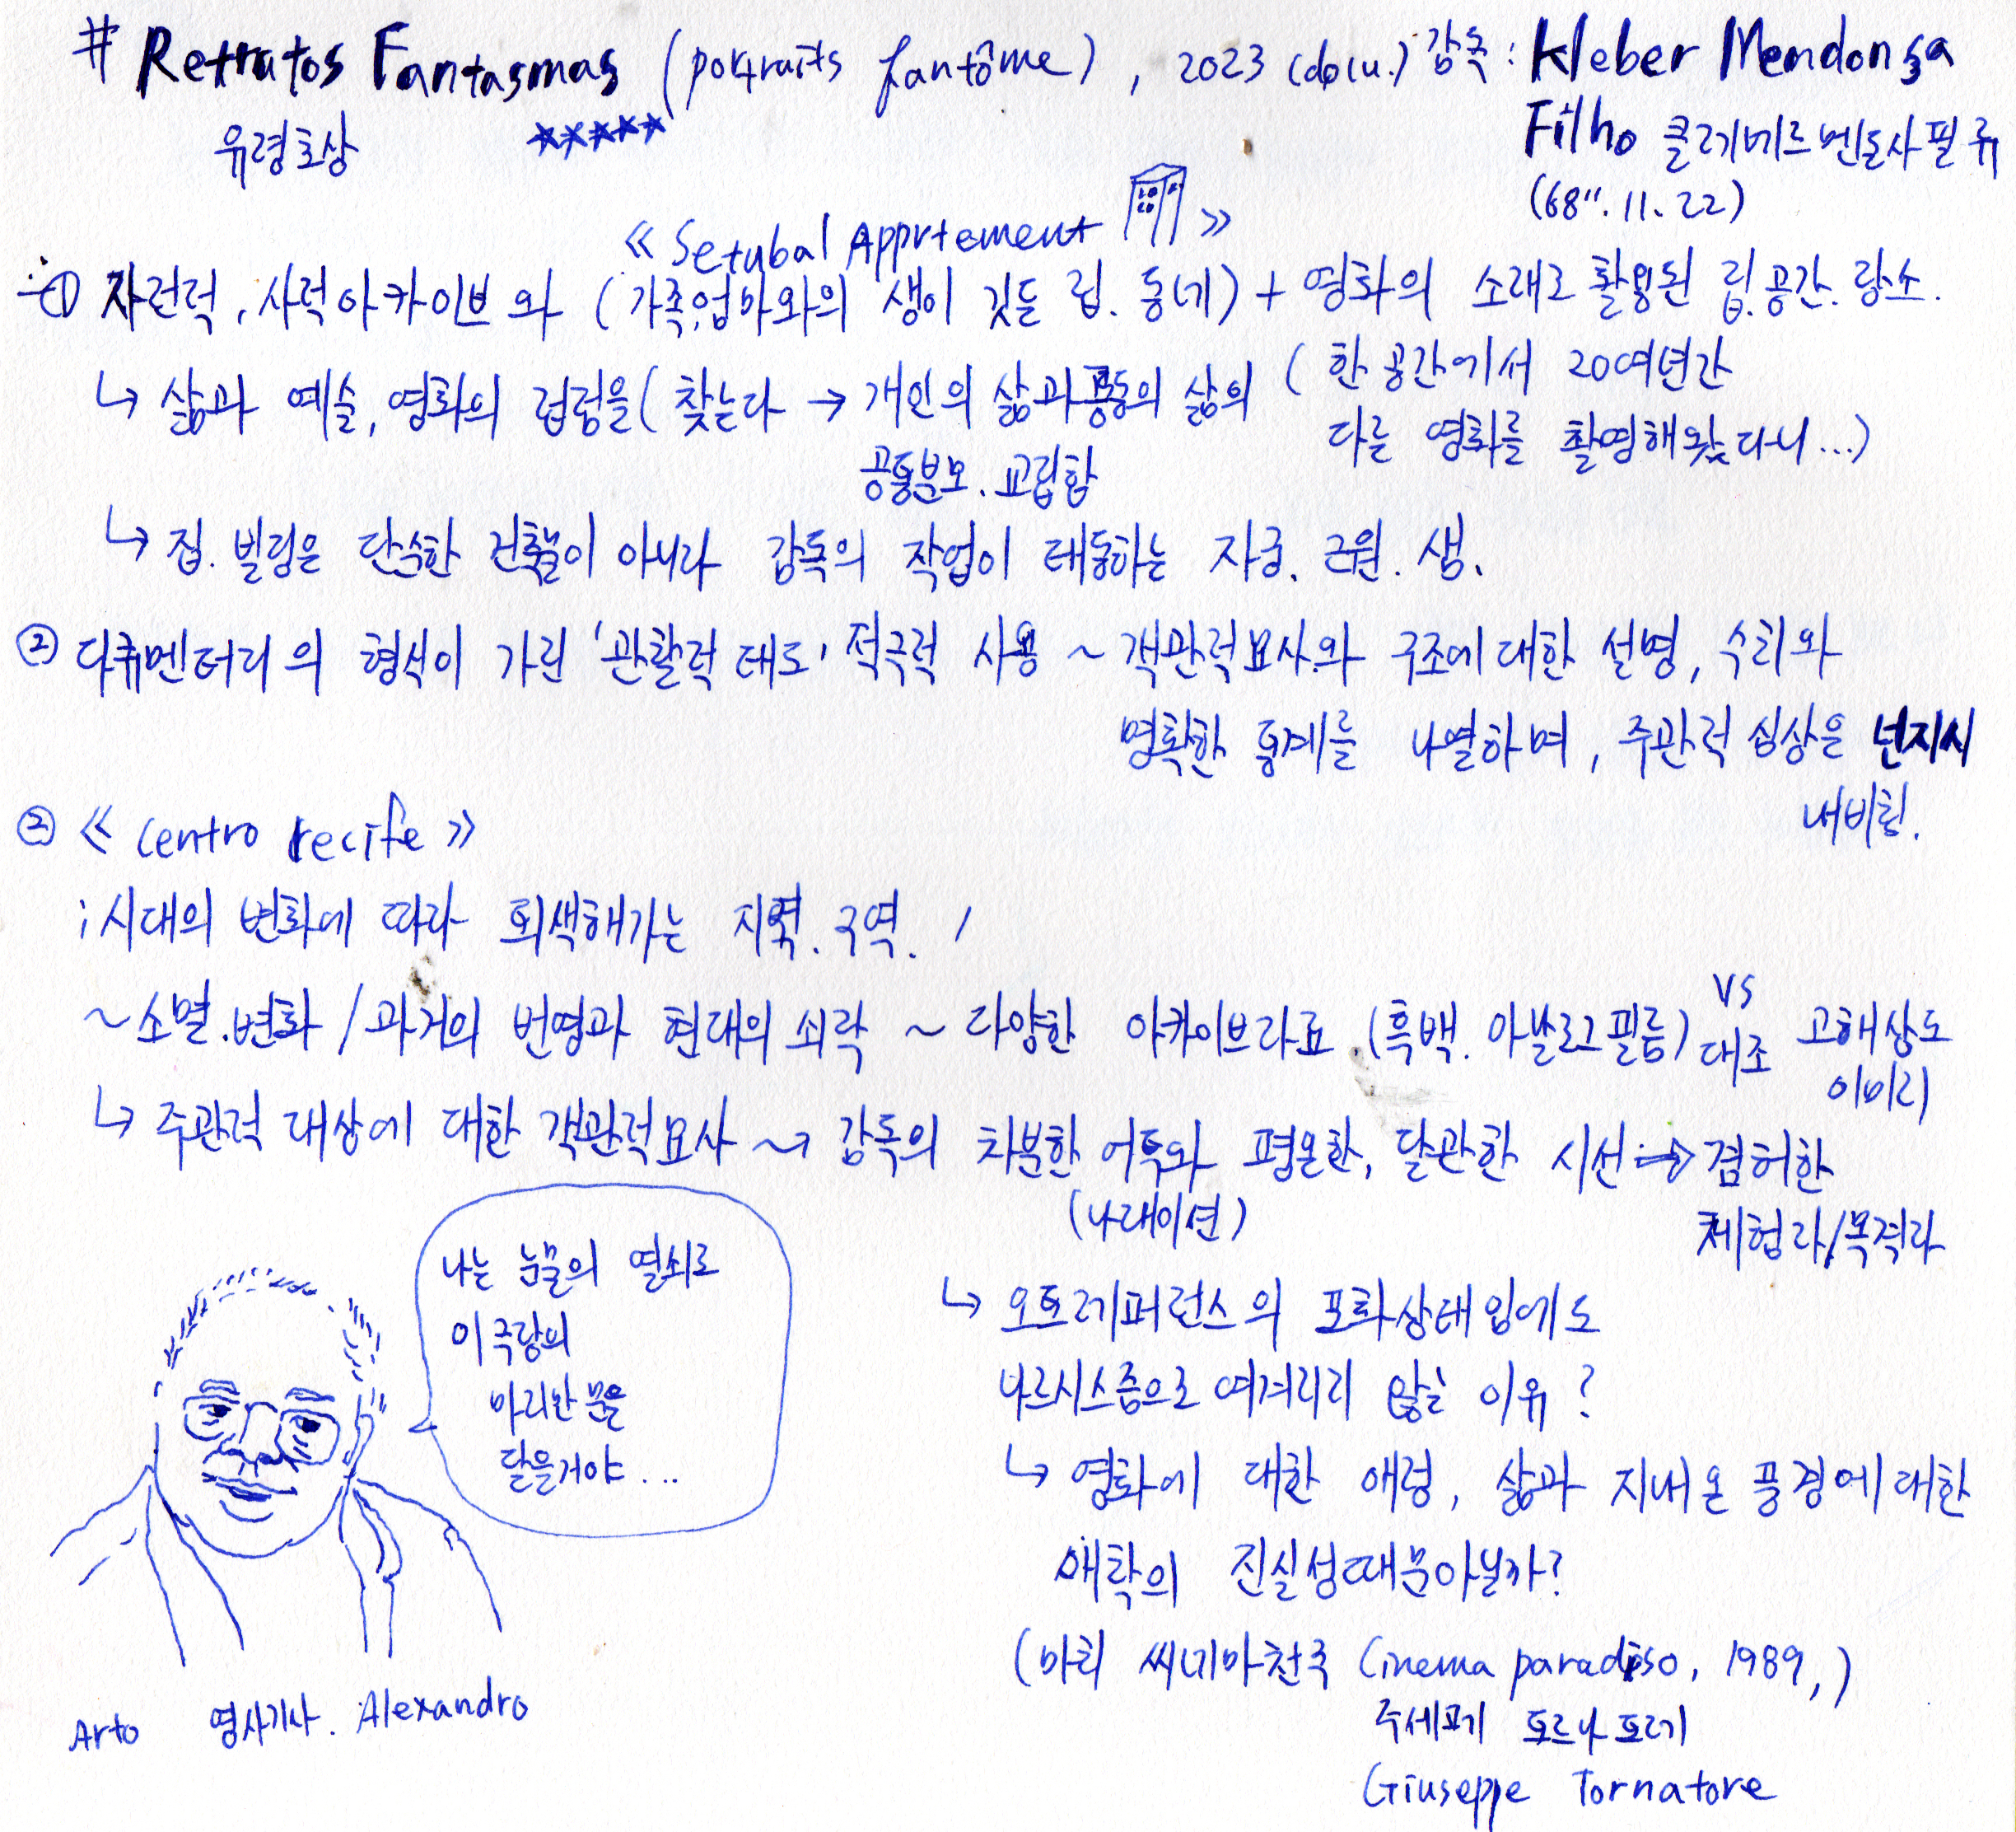 # Retratos Fantasmas (portraits fantôme), 2023 (docu.) 감독 : Kleber Mendonça
유령초상 ★★★★★ Filho 클레베르 멘돈사 필류
(68". 11. 22)
《 Setubal Appartement 》
① 자전적, 사적아카이브와 (가족,엄마와의 생이 깃든 집. 동네) + 영화의 소재로 활용된 집.공간.장소.
↳ 삶과 예술, 영화의 접점을 ( 찾는다 → 개인의 삶과 공동의 삶의
공통분모. 교집합
( 한 공간에서 20여년간
다른 영화를 촬영해왔다니...)
↳ 집. 빌딩은 단순한 건축물이 아니라 감독의 작업이 태동하는 자궁. 근원. 샘.
② 다큐멘터리의 형식이 가진 '관찰적 태도' 적극적 사용 ~ 객관적묘사와 구조에 대한 설명, 수치와
명확한 통계를 나열하며, 주관적 심상은 넌지시
내비침.
② 《 Centro recife 》
; 시대의 변화에 따라 퇴색해가는 지역. 구역. /
~ 소멸.변화 / 과거의 번영과 현대의 쇠락 ~ 다양한 아카이브자료 (흑백. 아날로그필름) vs 대조 고해상도
이미지
↳ 주관적 대상에 대한 객관적묘사 ~ 감독의 차분한 어투와 평온한, 달관한 시선 → 겸허한
(나래이션) 체험자/목격자
↳ 오토레퍼런스의 포화상태임에도
나르시스즘으로 여겨지지 않는 이유 ?
↳ 영화에 대한 애정, 삶과 지내온 풍경에 대한
애착의 진실성때문아닐까?
(마치 씨네마천국 Cinema paradiso, 1989,)
주세페 토르나토레
Giuseppe Tornatore
나는 눈물의 열쇠로
이 극장의
마지막 문을
닫을거야 ...
Arto 영사기사. Alexandro